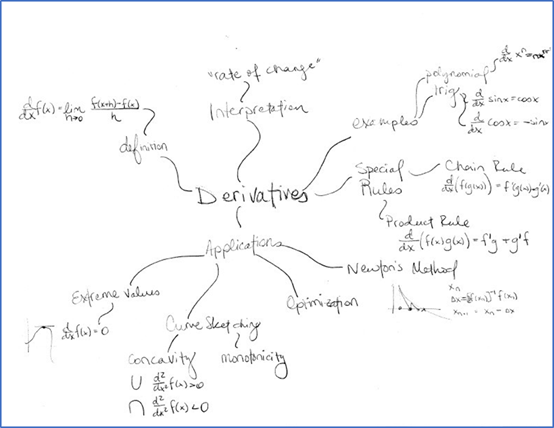 "rate of change"
Interpretation
d/dx f(x) = lim h→0 f(x+h)-f(x)/h
definition
examples
polynomial
d/dx xⁿ
trig
d/dx sinx = cosx
d/dx cosx = -sinx
Derivatives
Special Rules
Chain Rule
d/dx (f(g(x)) = f'(g(x))·g'(x)
Product Rule
d/dx (f(x)g(x)) = f'g + g'f
Applications
Newton's Method
xₙ
f(xₙ)
xₙ₊₁ = xₙ - Δx
Optimization
Extreme Values
d/dx f(x) = 0
Curve Sketching
monotonicity
Concavity
∪ d²/dx² f(x) > 0
∩ d²/dx² f(x) < 0